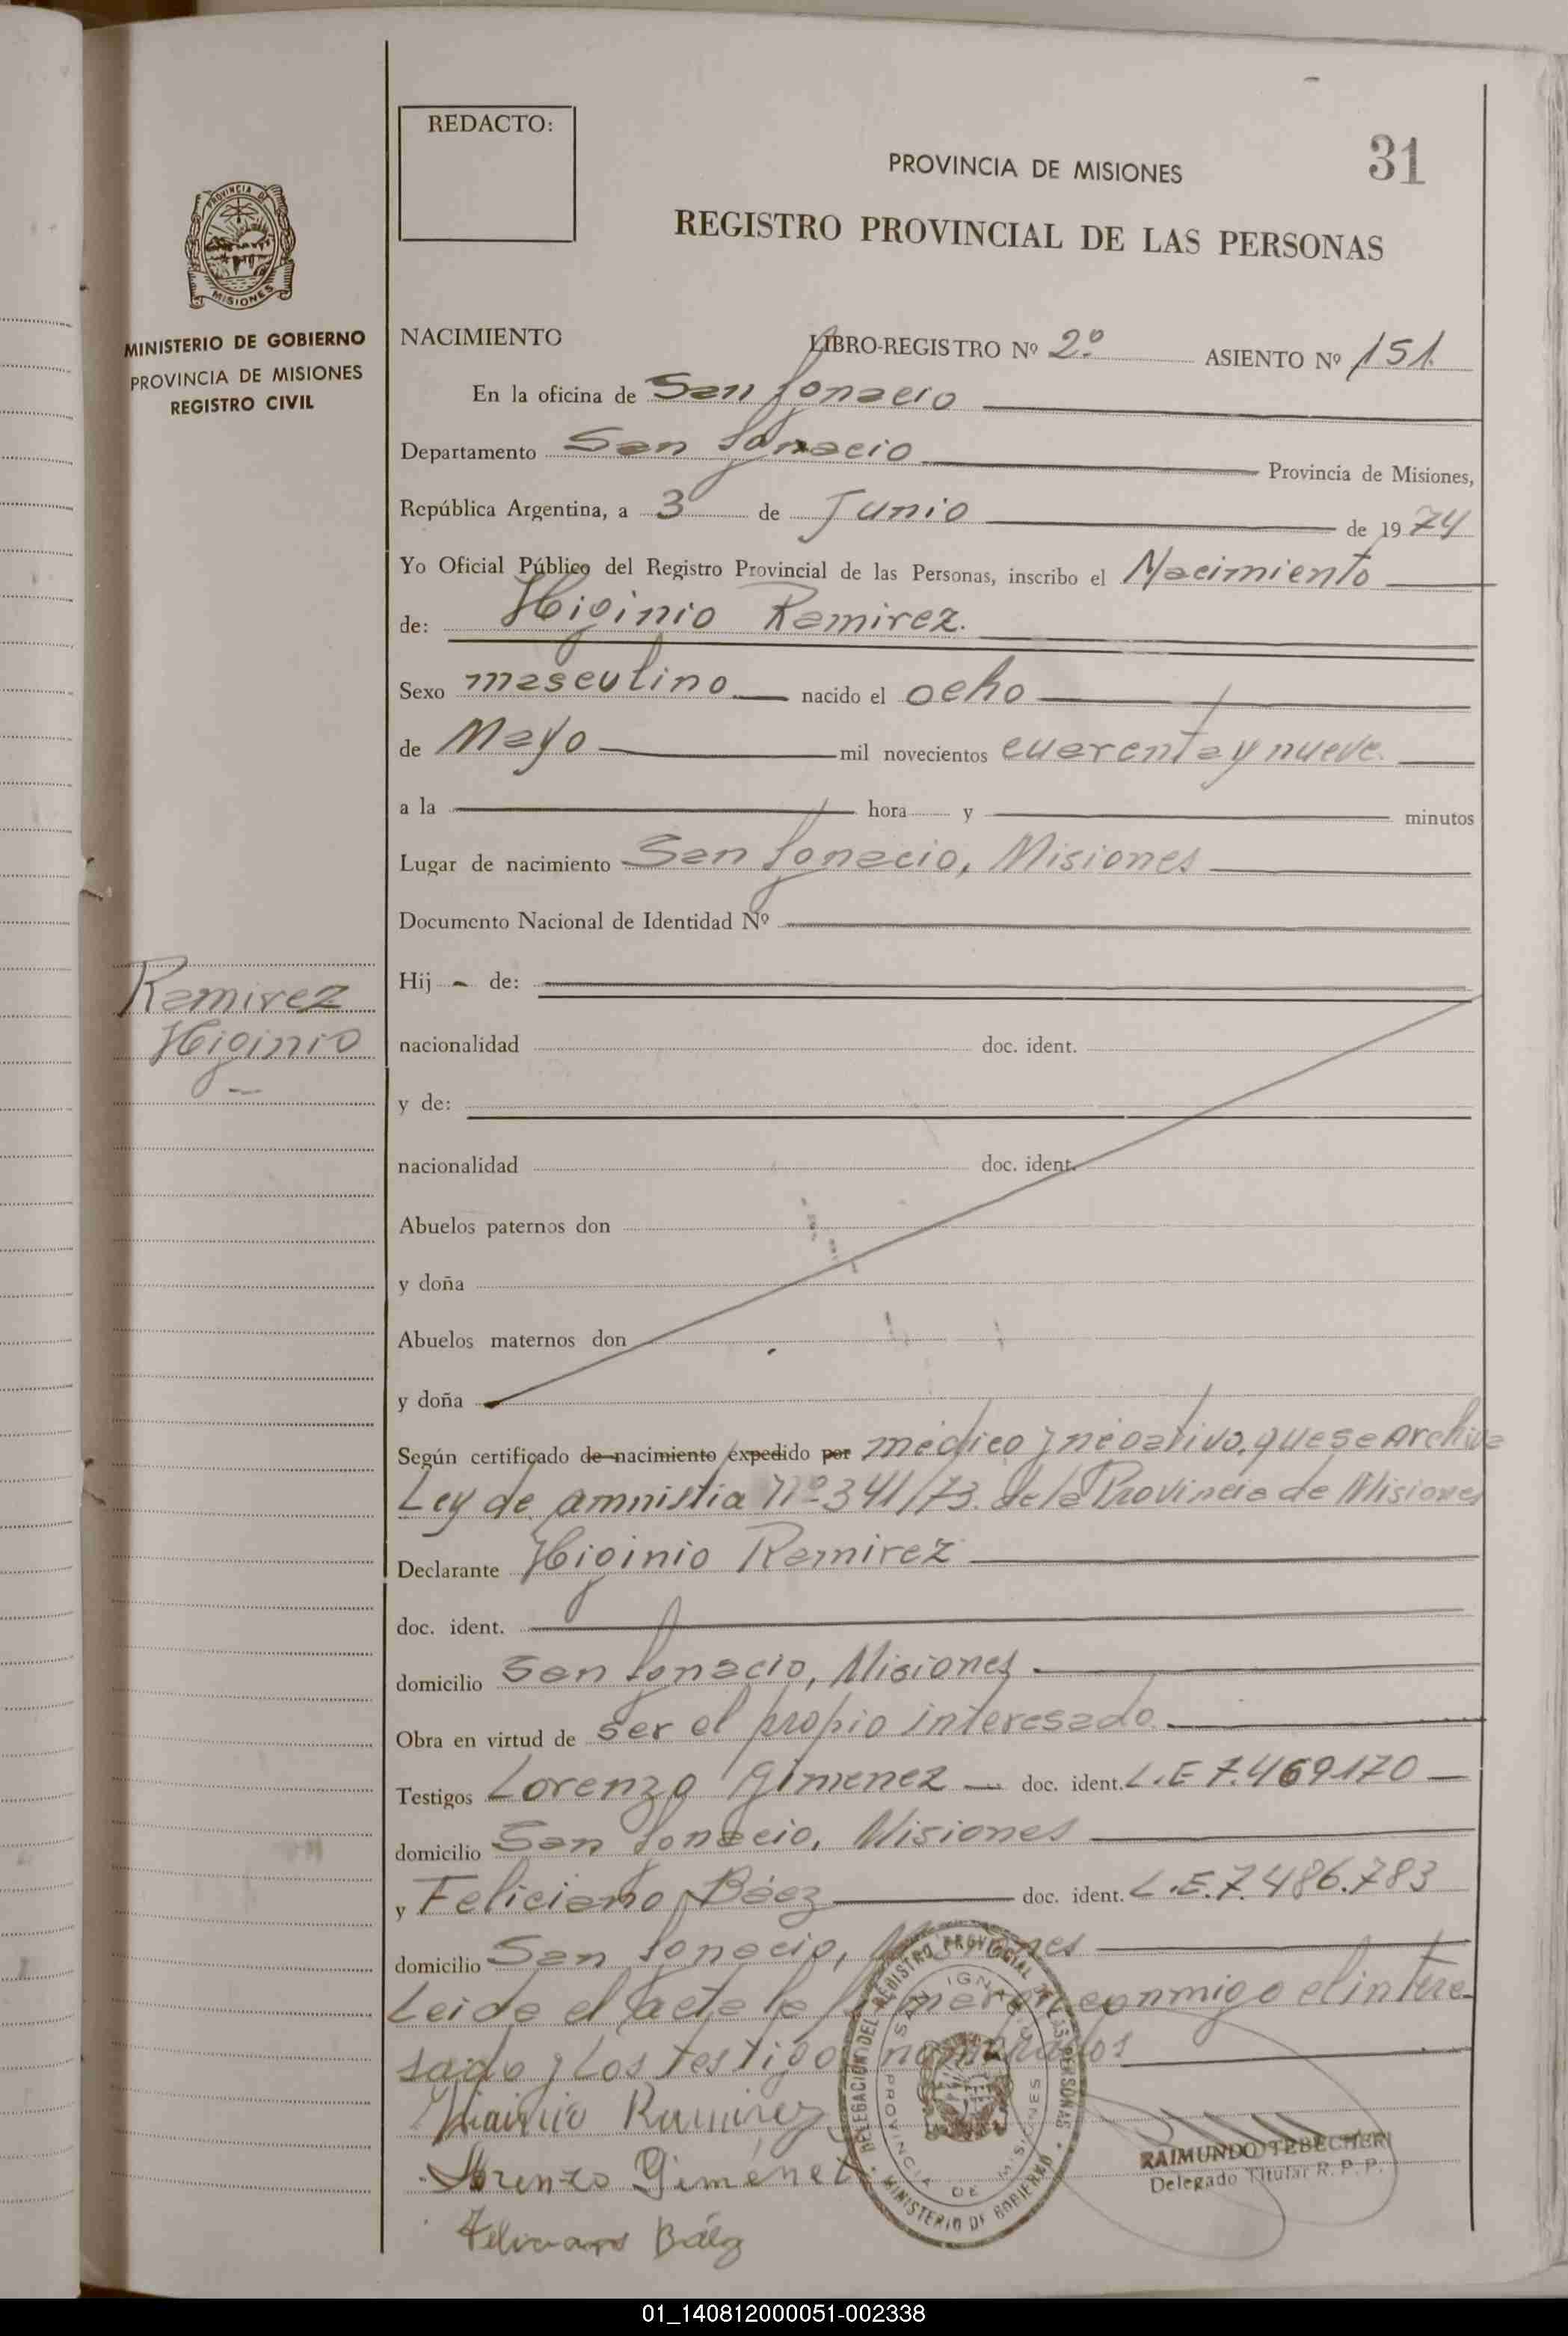 REDACTO:
PROVINCIA DE MISIONES
31
REGISTRO PROVINCIAL DE LAS PERSONAS
PROVINCIA DE
MISIONES
MINISTERIO DE GOBIERNO
PROVINCIA DE MISIONES
REGISTRO CIVIL
NACIMIENTO LIBRO-REGISTRO Nº 2º ASIENTO Nº 151
En la oficina de San Ignacio
Departamento San Ignacio Provincia de Misiones,
República Argentina, a 3 de Junio de 1974
Yo Oficial Público del Registro Provincial de las Personas, inscribo el Nacimiento
de: Higinio Ramirez.
Sexo masculino nacido el ocho
de Mayo mil novecientos cuarenta y nueve.
a la hora y minutos
Lugar de nacimiento San Ignacio, Misiones
Documento Nacional de Identidad Nº
Hij - de:
Ramirez
Higinio
nacionalidad doc. ident.
y de:
nacionalidad doc. ident.
Abuelos paternos don
y doña
Abuelos maternos don
y doña
Según certificado de nacimiento expedido por médico y negativo, que se archiva
Ley de amnistia Nº 341/73. de la Provincia de Misiones
Declarante Higinio Ramirez
doc. ident.
domicilio San Ignacio, Misiones
Obra en virtud de ser el propio interesado
Testigos Lorenzo Gimenez doc. ident. L.E 7.469170
domicilio San Ignacio, Misiones
y Feliciano Báez doc. ident. L.E.7.486.783
domicilio San Ignacio, Misiones
Leida el acta la firmaron conmigo el intere
sado y los testigos nombrados
Higinio Ramirez
Lorenzo Gimenez
Feliciano Báez
DELEGACION DEL REGISTRO PROVINCIAL DE LAS PERSONAS
MINISTERIO DE GOBIERNO
SAN IGNACIO
PROVINCIA DE MISIONES
RAIMUNDO TEBECHERI
Delegado Titular R. P. P.
01_140812000051-002338